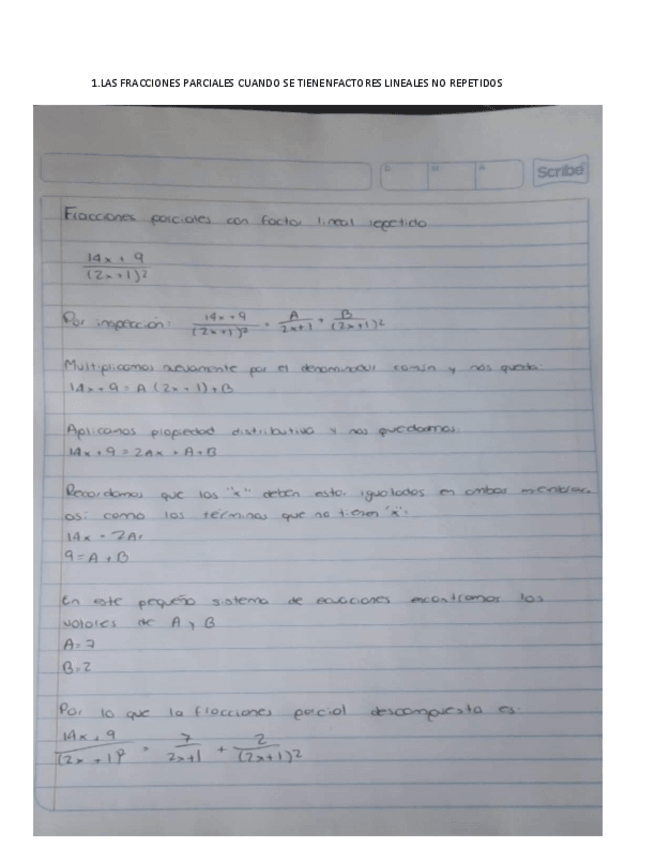 1.LAS FRACCIONES PARCIALES CUANDO SE TIENENFACTORES LINEALES NO REPETIDOS
Scribe
Fracciones parciales con factor lineal repetido
14x + 9
(2x+1)²
Por inspección: 14x+9/(2x+1)² = A/2x+1 + B/(2x+1)²
Multiplicamos nuevamente por el denominador común y nos queda:
14x+9 = A (2x+1)+B
Aplicamos propiedad distributiva y nos quedamos:
14x+9 = 2Ax + A+B
Recordamos que las "x" deben estar igualados en ambos miembros.
así como los términos que no tienen "x":
14x = 2Ax
9 = A + B
En este pequeño sistema de ecuaciones encontramos los
valores de A y B
A=7
B=2
Por lo que la fracciones parcial descompuesta es:
14x+9/(2x+1)² = 7/2x+1 + 2/(2x+1)²